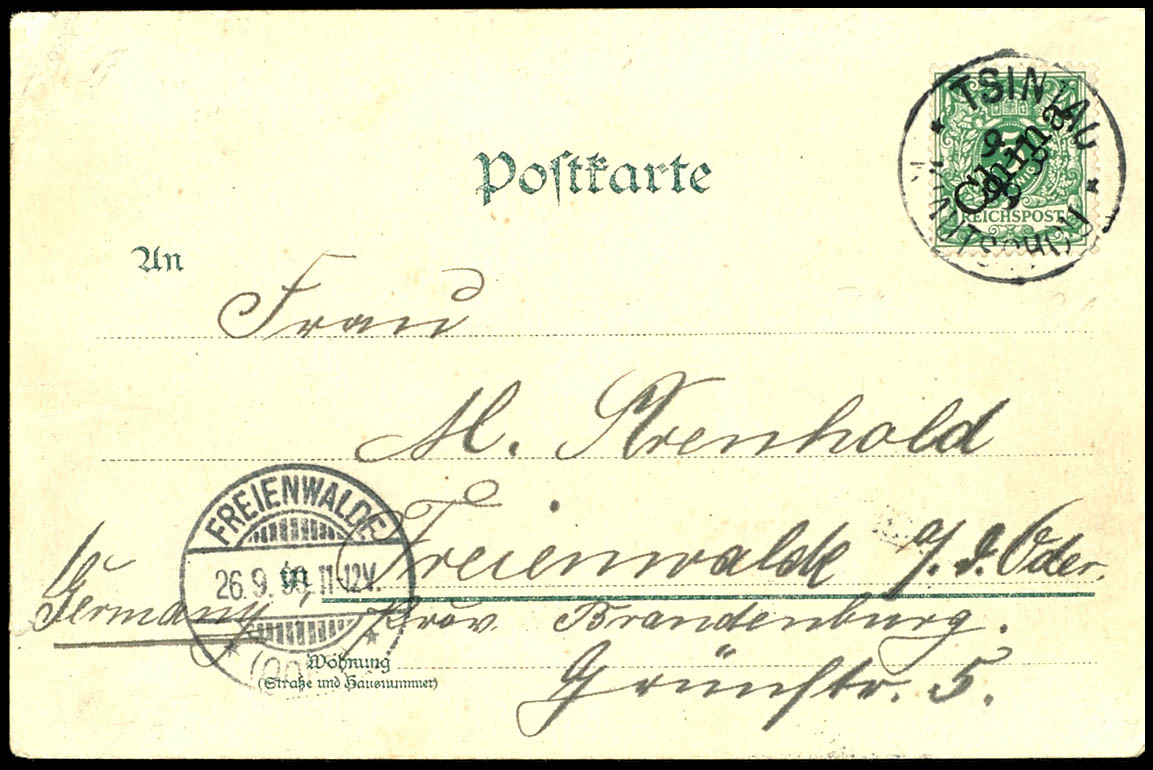 TSINTAU
China
REICHSPOST
KIAUTSCHOU
Postkarte
An
Frau
M. Arenhold
FREIENWALDE
Freienwalde a/d. Oder.
26.9. 11-12V.
in
Germany
Prov. Brandenburg.
Wohnung
(Straße und Hausnummer)
Grünstr. 5.